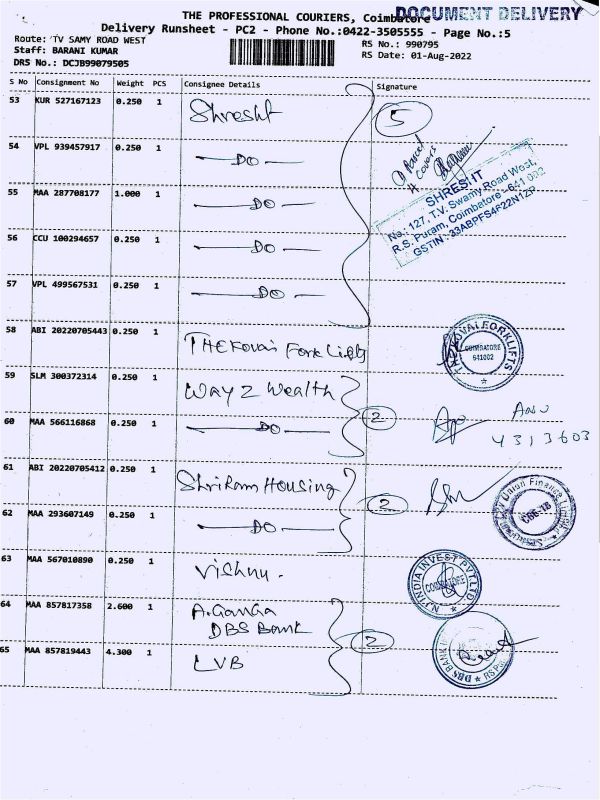 THE PROFESSIONAL COURIERS, Coimbatore
DOCUMENT DELIVERY
Delivery Runsheet - PC2 - Phone No.:0422-3505555 - Page No.:5
Route: TV SAMY ROAD WEST
RS No.: 990795
Staff: BARANI KUMAR
RS Date: 01-Aug-2022
DRS No.: DCJB99079505
S No Consignment No Weight PCS Consignee Details Signature
53 KUR 527167123 0.250 1 Shresht 5
54 VPL 939457917 0.250 1 —DO—
Parcel
4 Covers
55 MAA 287708177 1.000 1 —DO—
SHRESHT
No.: 127, T.V. Swamy Road West,
R.S. Puram, Coimbatore - 641 002
GSTIN : 33ABPFS4F22N1ZP
56 CCU 100294657 0.250 1 —DO—
57 VPL 499567531 0.250 1 —DO—
58 ABI 20220705443 0.250 1 THE Kovai Fork Lifts
THE KOVAI FORKLIFTS
COIMBATORE
641002
59 SLM 300372314 0.250 1 Way 2 Wealth
60 MAA 566116868 0.250 1 —DO— 2
Anu
4313603
61 ABI 20220705412 0.250 1 Shri Ram Housing 2
Union Finance Limited
CBE-1B
62 MAA 293607149 0.250 1 —DO—
63 MAA 567010890 0.250 1 Vishnu.
N.J. INDIA INVEST PVT LTD
COIMBATORE
64 MAA 857817358 2.600 1 A. Ganga
DBS Bank 2
DBS BANK
65 MAA 857819443 4.300 1 LVB